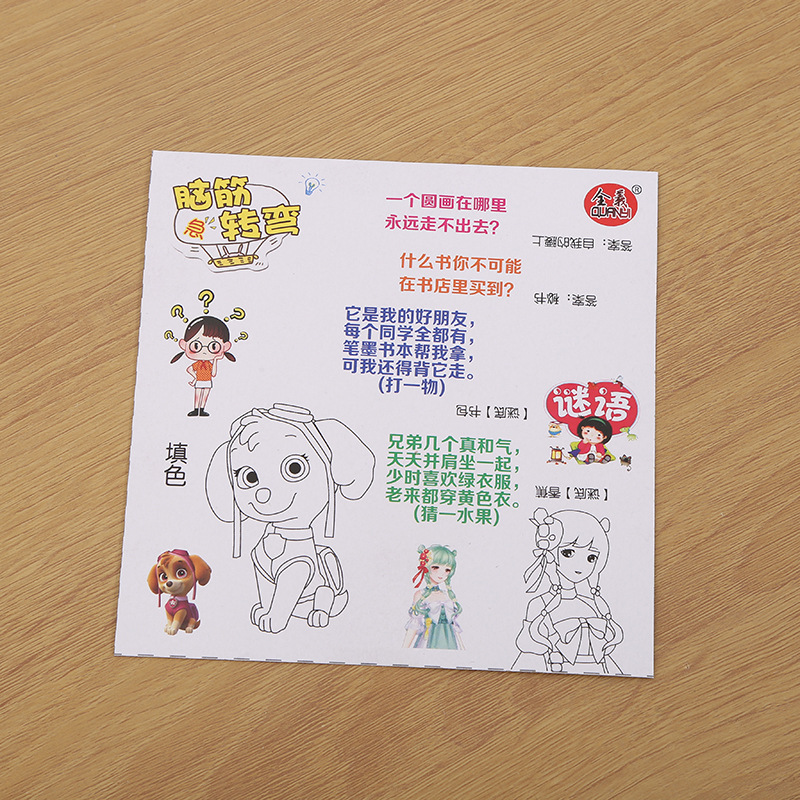 脑筋
急转弯
一个圆画在哪里
永远走不出去?
全羲
QUANYI
®
答案:自我的腰上
什么书你不可能
在书店里买到?
答案:秘书
它是我的好朋友,
每个同学全都有,
笔墨书本帮我拿,
可我还得背它走。
(打一物)
【谜底】书包
谜语
兄弟几个真和气,
天天并肩坐一起,
少时喜欢绿衣服,
老来都穿黄色衣。
(猜一水果)
【谜底】香蕉
填色